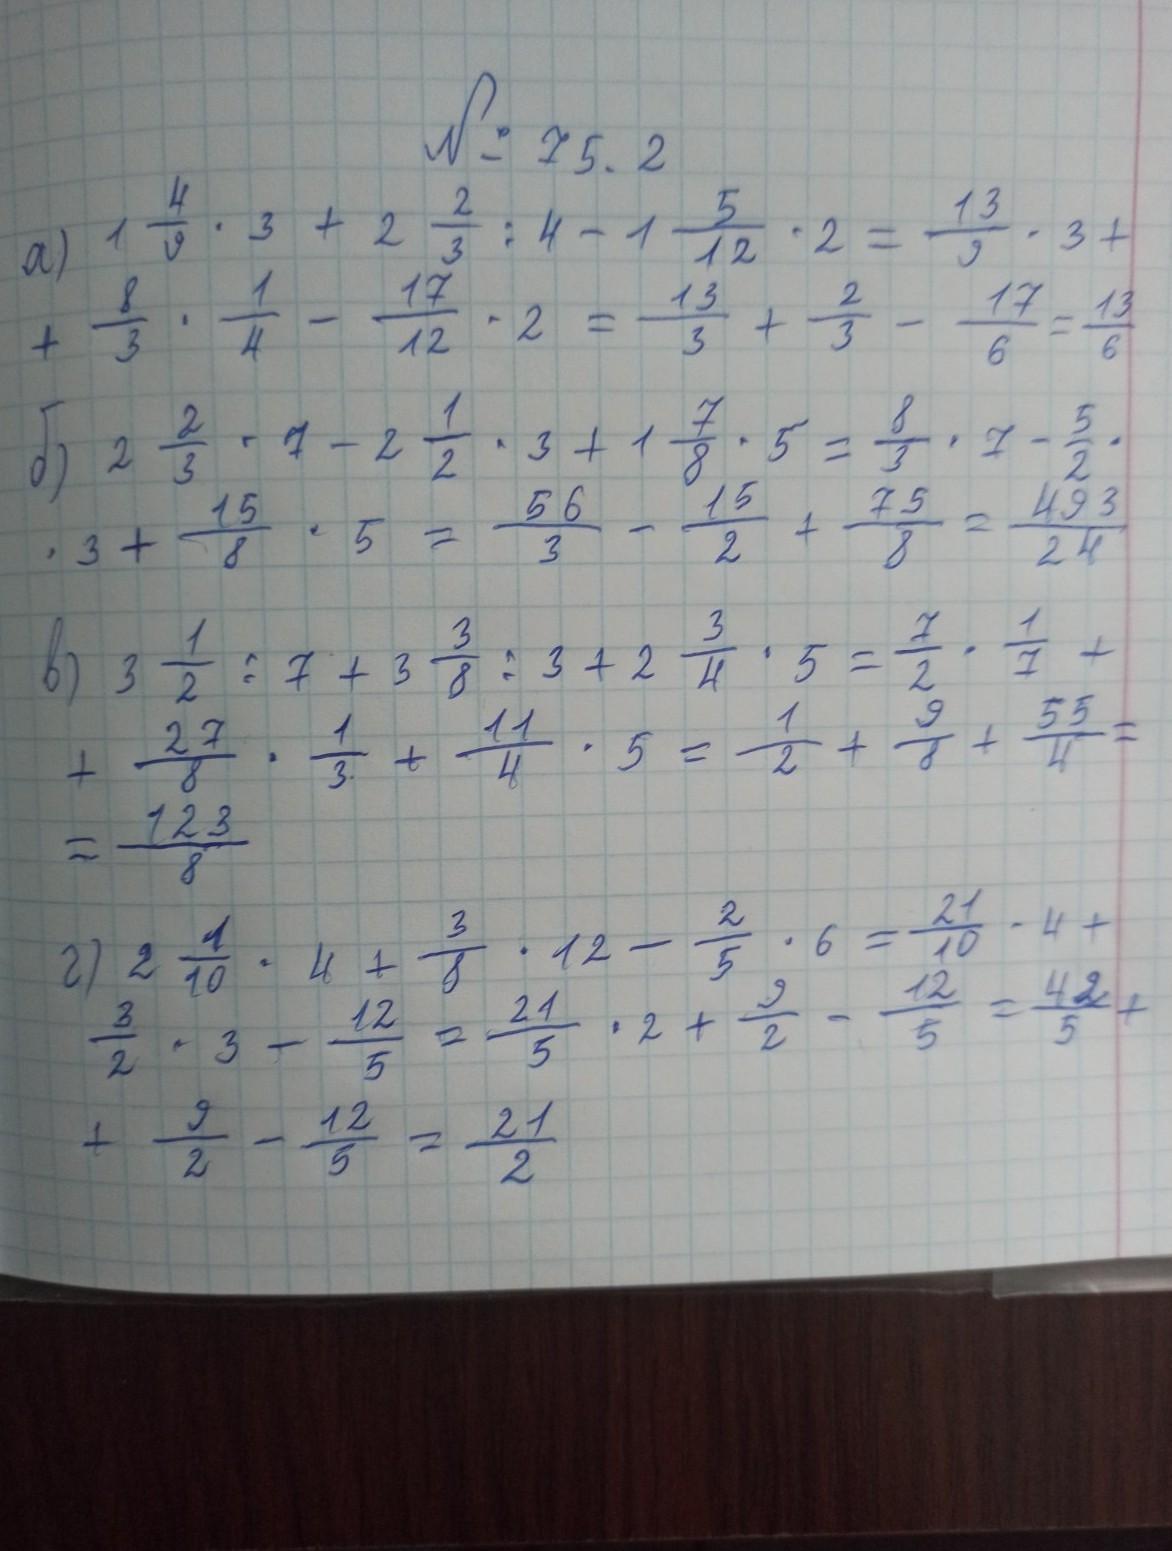 № 75.2
а) 1 4/9 · 3 + 2 2/3 : 4 - 1 5/12 · 2 = 13/9 · 3 +
+ 8/3 · 1/4 - 17/12 · 2 = 13/3 + 2/3 - 17/6 = 13/6
б) 2 2/3 · 7 - 2 1/2 · 3 + 1 7/8 · 5 = 8/3 · 7 - 5/2 ·
· 3 + 15/8 · 5 = 56/3 - 15/2 + 75/8 = 493/24
в) 3 1/2 : 7 + 3 3/8 : 3 + 2 3/4 · 5 = 7/2 · 1/7 +
+ 27/8 · 1/3 + 11/4 · 5 = 1/2 + 9/8 + 55/4 =
= 123/8
г) 2 1/10 · 4 + 3/8 · 12 - 2/5 · 6 = 21/10 · 4 +
3/2 · 3 - 12/5 = 21/5 · 2 + 9/2 - 12/5 = 42/5 +
+ 9/2 - 12/5 = 21/2